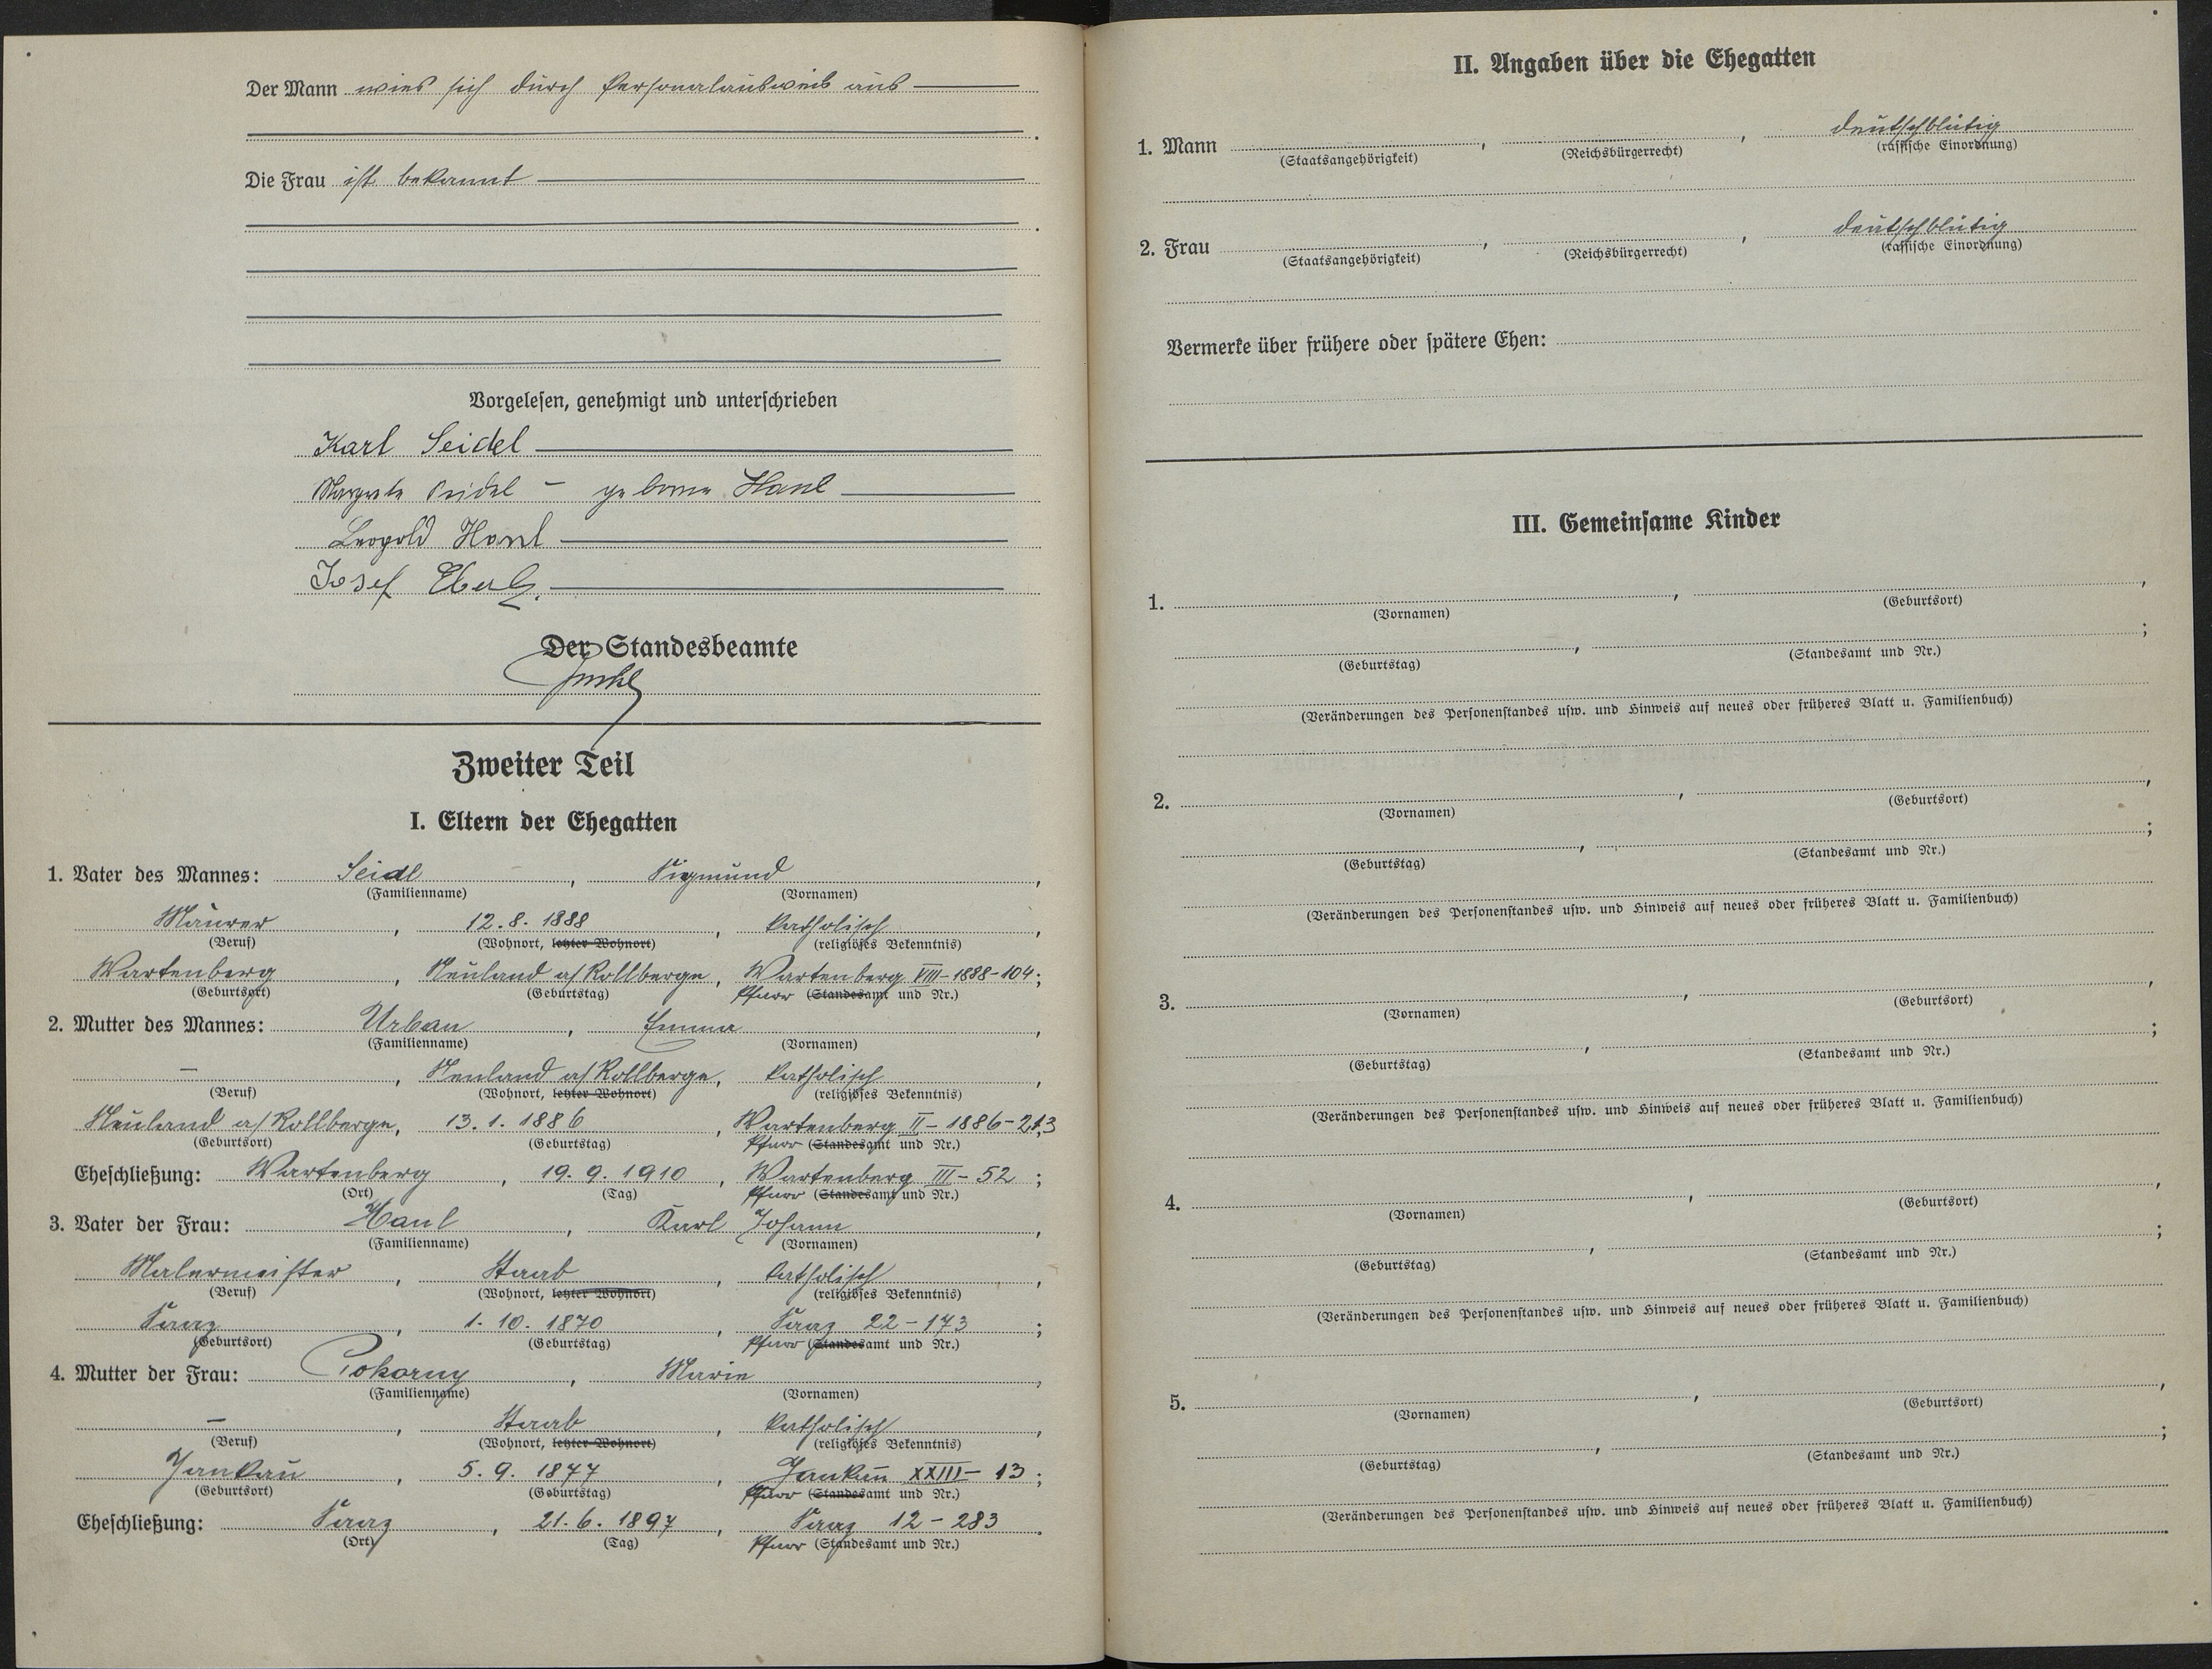 Der Mann wies sich durch Personalausweis aus
Die Frau ist bekannt
Vorgelesen, genehmigt und unterschrieben
Karl Seidel
Margarete Seidel - geborene Hanl
Leopold Hanl
Josef
Der Standesbeamte
Zweiter Teil
I. Eltern der Ehegatten
1. Vater des Mannes: Seidl, Siegmund,
(Familienname) (Vornamen)
Maurer, 12.8.1888, katholisch,
(Beruf) (Wohnort, letzter Wohnort) (religiöses Bekenntnis)
Wartenberg, Neuland a/Rollberge, Wartenberg VIII-1888-104;
(Geburtsort) (Geburtstag) Pfarr (Standesamt und Nr.)
2. Mutter des Mannes: Urban, Emma,
(Familienname) (Vornamen)
—, Neuland a/Rollberge, katholisch,
(Beruf) (Wohnort, letzter Wohnort) (religiöses Bekenntnis)
Neuland a/Rollberge, 13.1.1886, Wartenberg II-1886-213
(Geburtsort) (Geburtstag) Pfarr (Standesamt und Nr.)
Eheschließung: Wartenberg, 19.9.1910, Wartenberg III-52;
(Ort) (Tag) Pfarr (Standesamt und Nr.)
3. Vater der Frau: Hanl, Karl Johann,
(Familienname) (Vornamen)
Malermeister, Staab, katholisch,
(Beruf) (Wohnort, letzter Wohnort) (religiöses Bekenntnis)
Saaz, 1.10.1870, Saaz 22-173;
(Geburtsort) (Geburtstag) Pfarr (Standesamt und Nr.)
4. Mutter der Frau: Pokorny, Marie,
(Familienname) (Vornamen)
—, Staab, katholisch,
(Beruf) (Wohnort, letzter Wohnort) (religiöses Bekenntnis)
Jankau, 5.9.1877, Jankau XXIII-13;
(Geburtsort) (Geburtstag) Pfarr (Standesamt und Nr.)
Eheschließung: Saaz, 21.6.1897, Saaz 12-283.
(Ort) (Tag) Pfarr (Standesamt und Nr.)
II. Angaben über die Ehegatten
1. Mann , , deutschblütig
(Staatsangehörigkeit) (Reichsbürgerrecht) (rassische Einordnung)
2. Frau , , deutschblütig
(Staatsangehörigkeit) (Reichsbürgerrecht) (rassische Einordnung)
Vermerke über frühere oder spätere Ehen:
III. Gemeinsame Kinder
1. , ,
(Vornamen) (Geburtsort)
, ;
(Geburtstag) (Standesamt und Nr.)
(Veränderungen des Personenstandes usw. und Hinweis auf neues oder früheres Blatt u. Familienbuch)
2. , ,
(Vornamen) (Geburtsort)
, ;
(Geburtstag) (Standesamt und Nr.)
(Veränderungen des Personenstandes usw. und Hinweis auf neues oder früheres Blatt u. Familienbuch)
3. , ,
(Vornamen) (Geburtsort)
, ;
(Geburtstag) (Standesamt und Nr.)
(Veränderungen des Personenstandes usw. und Hinweis auf neues oder früheres Blatt u. Familienbuch)
4. , ,
(Vornamen) (Geburtsort)
, ;
(Geburtstag) (Standesamt und Nr.)
(Veränderungen des Personenstandes usw. und Hinweis auf neues oder früheres Blatt u. Familienbuch)
5. , ,
(Vornamen) (Geburtsort)
, ;
(Geburtstag) (Standesamt und Nr.)
(Veränderungen des Personenstandes usw. und Hinweis auf neues oder früheres Blatt u. Familienbuch)